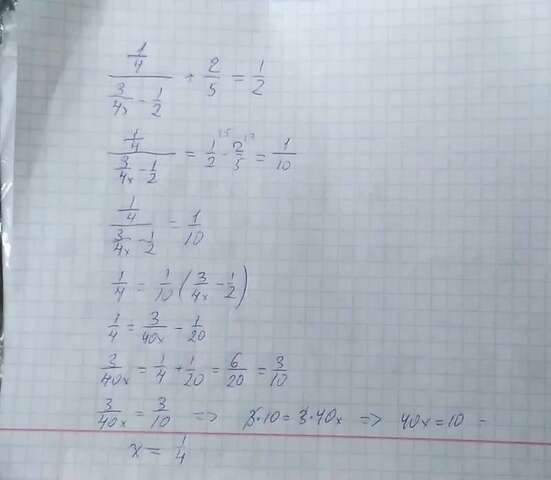 (1/4)/(3/4x - 1/2) + 2/5 = 1/2
(1/4)/(3/4x - 1/2) = 1/2 - 2/5 = 1/10
(1/4)/(3/4x - 1/2) = 1/10
1/4 = 1/10 (3/4x - 1/2)
1/4 = 3/40x - 1/20
3/40x = 1/4 + 1/20 = 6/20 = 3/10
3/40x = 3/10 => 3·10 = 3·40x => 40x = 10
x = 1/4